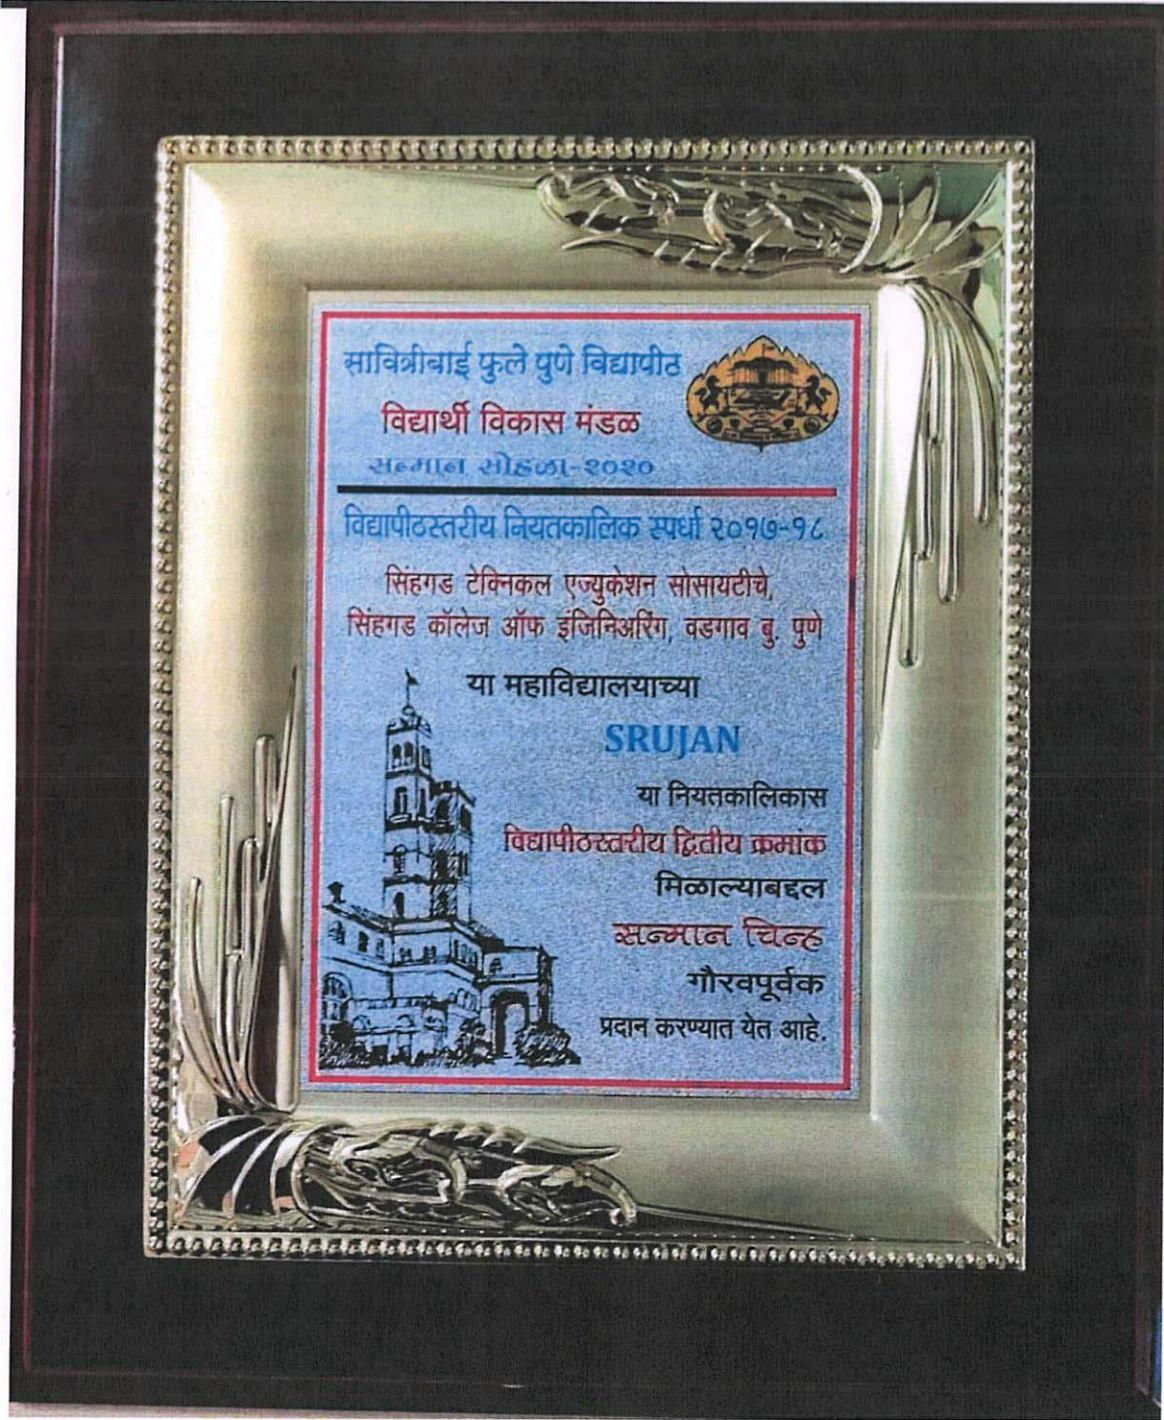 सावित्रीबाई फुले पुणे विद्यापीठ
विद्यार्थी विकास मंडळ
सन्मान सोहळा-२०२०
विद्यापीठस्तरीय नियतकालिक स्पर्धा २०१७-१८
सिंहगड टेक्निकल एज्युकेशन सोसायटीचे,
सिंहगड कॉलेज ऑफ इंजिनिअरिंग, वडगाव बु. पुणे
या महाविद्यालयाच्या
SRUJAN
या नियतकालिकास
विद्यापीठस्तरीय द्वितीय क्रमांक
मिळाल्याबद्दल
सन्मान चिन्ह
गौरवपूर्वक
प्रदान करण्यात येत आहे.